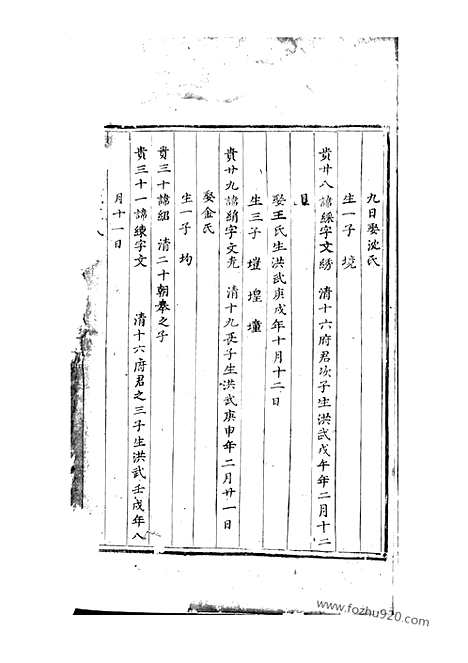 九日娶沈氏
生一子 境
貴廿八諱綵字文綉 清十六府君次子生洪武戊午年二月十二
日
娶王氏生洪武庚戌年十月十二日
生三子 塏 堭 墥
貴廿九諱綃字文 清十九長子生洪武庚申年二月廿一日
娶金氏
生一子 均
貴三十諱紹 清二十朝奉之子
貴三十一諱練字文 清十六府君之三子生洪武壬戌年八
月十一日
www.fozhu920.com